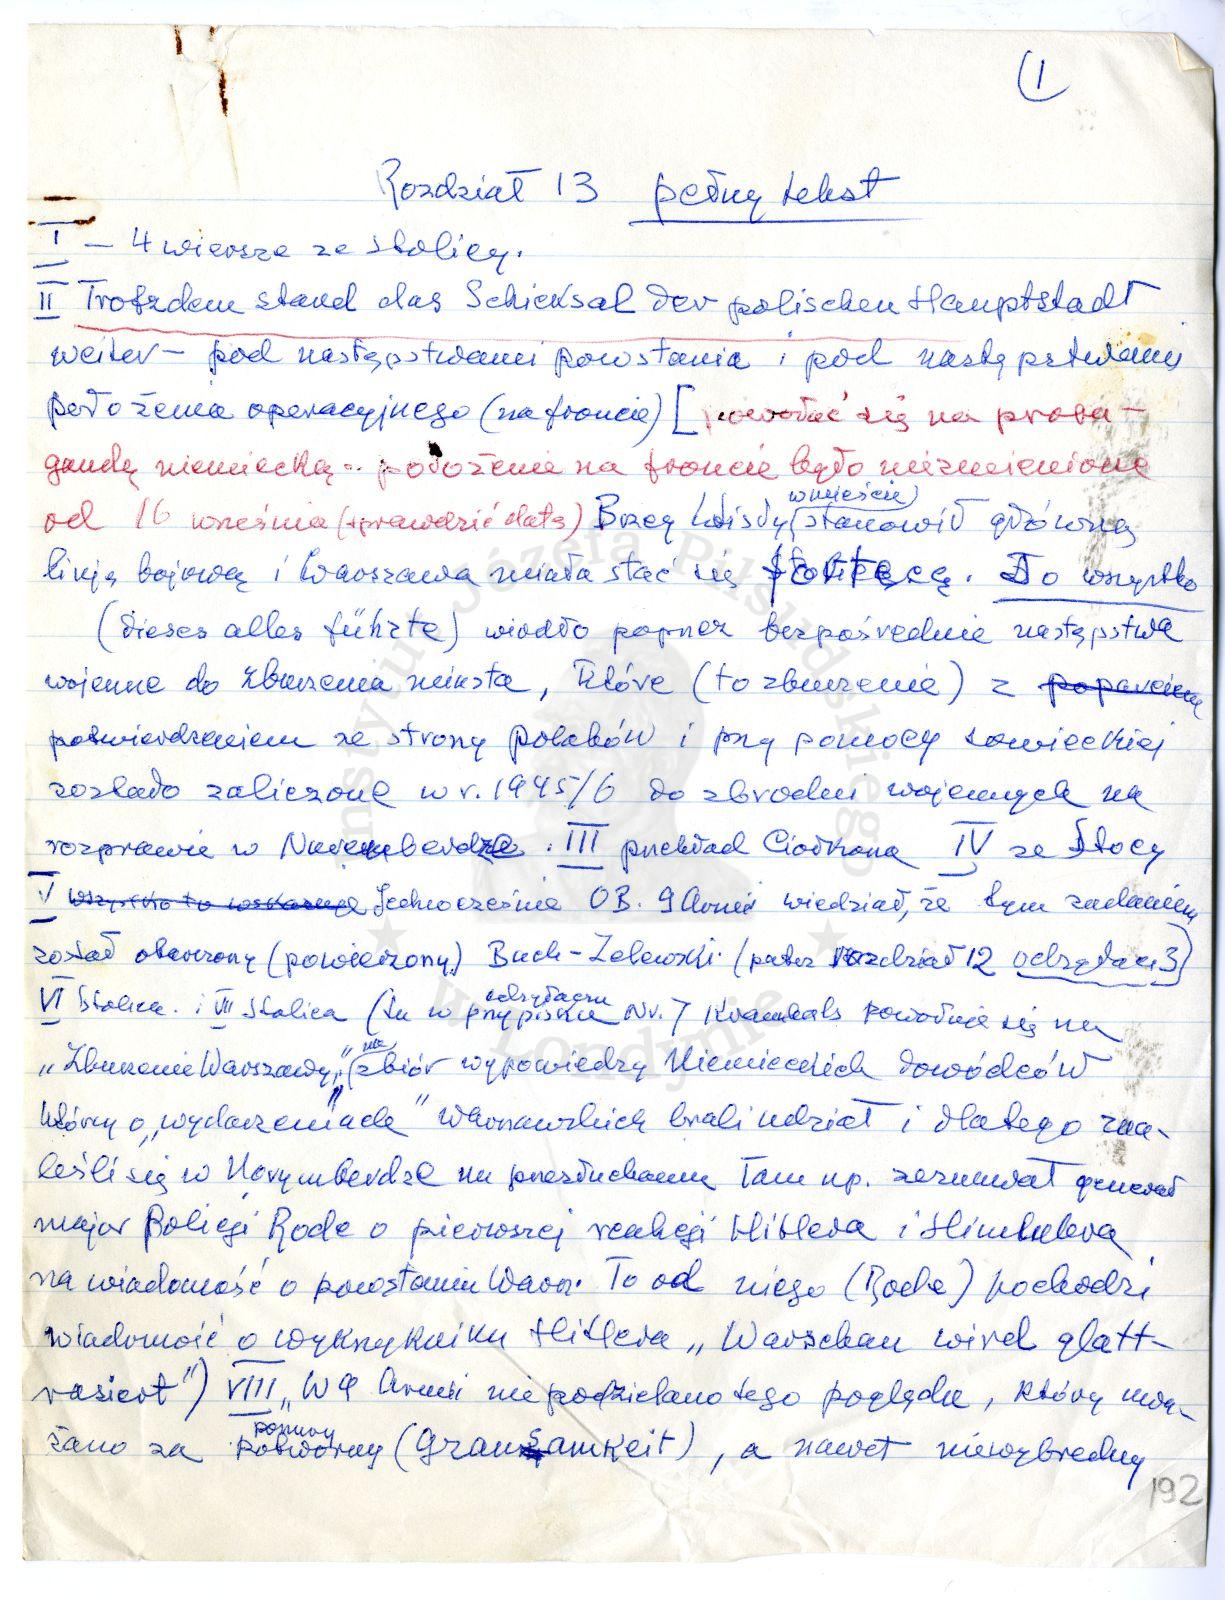 (1
Rozdział 13 pełny tekst
I – 4 wiersze ze stolicy.
II Trotzdem stand das Schicksal der polischen Hauptstadt
weiter – pod następstwami powstania i pod następstwami
położenia operacyjnego (na froncie) [powołać się na propa-
gandę niemiecką .. położenie na froncie było niezmienione
od 16 września (sprawdzić datę) Brzeg Wisły (w mieście) stanowił główną
linję bojową i Warszawa miała stać się fortecą. To wszystko
(dieses alles führte) wiodło poprzez bezpośrednie następstwa
wojenne do zburzenia miasta, które (to zburzenie) z poparciem
potwierdzeniem ze strony Polaków i przy pomocy sowieckiej
zostało zaliczone w r. 1945/6 do zbrodni wojennych na
rozprawie w Nuremberdze. III przekład Ciołkosza IV ze Stocy
V wszystko to wskazuje Jednocześnie OB. 9 Armii wiedział, że tym zadaniem
został obarczony (powierzony) Bach-Zelewski (patrz rozdział 12 odsyłacz 3)
VI Stolica. i VII Stolica (tu w przypisku odsyłaczu Nr. 7 Krannhals powołuje się na
„Zburzenie Warszawy", (na zbiór wypowiedzy Niemieckich dowódców
którzy o „wydarzeniach" warszawskich brali udział i dlatego zna-
leśli się w Norymberdze na przesłuchaniu Tam np. zeznawał generał
major Policji Rode o pierwszej reakcji Hitlera i Himmlera
na wiadomość o powstaniu Warsz. To od niego (Rode) pochodzi
wiadomość o wykrzykniku Hitlera „Warschau wird glatt-
rasiert") VIII „W 9 Armii nie podzielano tego poglądu, który uwa-
żano za ponury potworny (Grausamkeit), a nawet niewybredny
192
Instytut Józefa Piłsudskiego
w Londynie